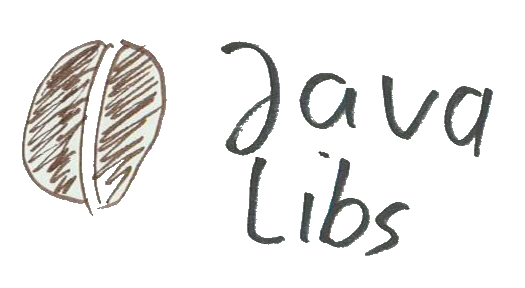 Java
Libs